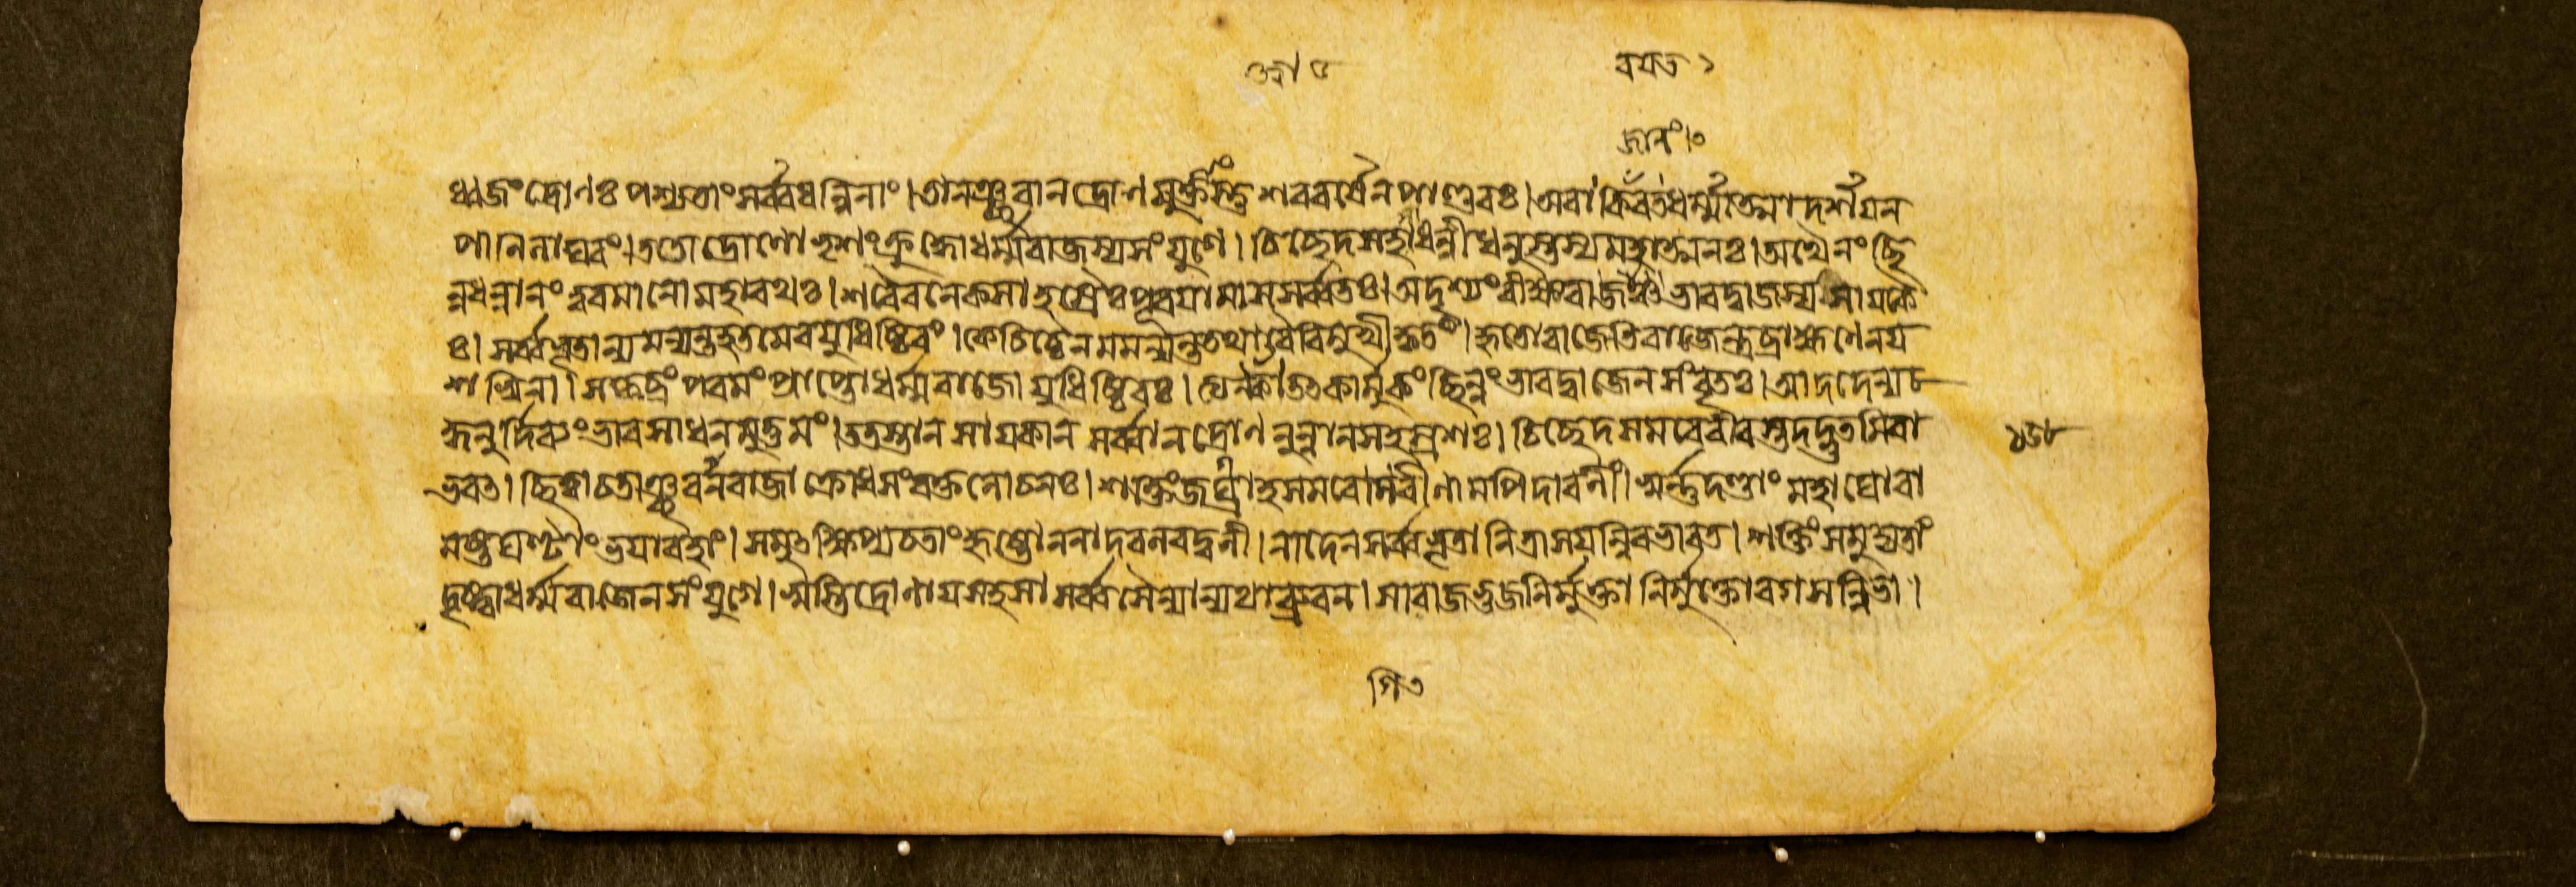 ধ্বজং দ্রোণঃ পশ্যতাং সর্ব্বধন্বিনাং। তানশ্ছরান দ্রোণমুক্তাংস্তু শরবর্ষেন পাণ্ডবঃ। অবাকিরত ধর্ম্মাত্মা দর্শয়ন
পানিলাঘবং। ততো দ্রোণো ভৃশং ক্রুদ্ধো ধর্ম্মরাজস্য সংযুগে। চিচ্ছেদ সহসা ধন্বী ধনুস্তস্য মহাত্মনঃ। অথৈনং ছি
ন্নধন্বানং ত্বরমানো মহারথঃ। শরৈরনেকসাহস্রৈঃ পূরয়ামাস সর্ব্বতঃ। অদৃশ্যং বীক্ষ্য রাজানং ভারদ্বাজস্য সায়কৈ
ঃ। সর্ব্বভূতান্যমন্যন্ত হতমেব যুধিষ্ঠিরং। কেচিচ্চৈনমমন্যন্ত তথা বৈ বিমুখীকৃতং। হৃতো রাজেতি রাজেন্দ্র ব্রাহ্মণেন য
শস্বিনা। স কৃচ্ছ্রং পরমং প্রাপ্তো ধর্ম্মরাজো যুধিষ্ঠিরঃ। ত্যক্ত্বা তৎ কার্মুকং ছিন্নং ভারদ্বাজেন সংবৃতঃ। আদদেন্যচ
দ্ধনুর্দিব্যং ভারসাধনমুত্তমং। ততস্তান সায়কান সর্ব্বান দ্রোণনুন্নান সহস্রশঃ। চিচ্ছেদ সমরে বীরস্তদদ্ভুতমিবা
ভবত। ছিত্বা চ তাঞ্ছরান রাজা ক্রোধসংরক্তলোচনঃ। শক্তিং জগ্রাহ সমরে গিরীণামপি দারনীং। স্বর্ন্নদণ্ডাং মহাঘোরা
মষ্টঘণ্টাং ভয়াবহাং। সমুৎক্ষিপ্য চ তাং হৃষ্টো ননাদ বলবদ্বলী। নাদেন সর্ব্বভূতানি ত্রাসয়ন্নিব ভারত। শক্তিং সমুদ্যতাং
দৃষ্ট্বা ধর্ম্মরাজেন সংযুগে। স্বস্তি দ্রোণায় সহসা সর্ব্বসৈন্যান্যথাব্রুবন। সা রাজভুজনির্মুক্তা নির্মুক্তোরগসন্নিভা।